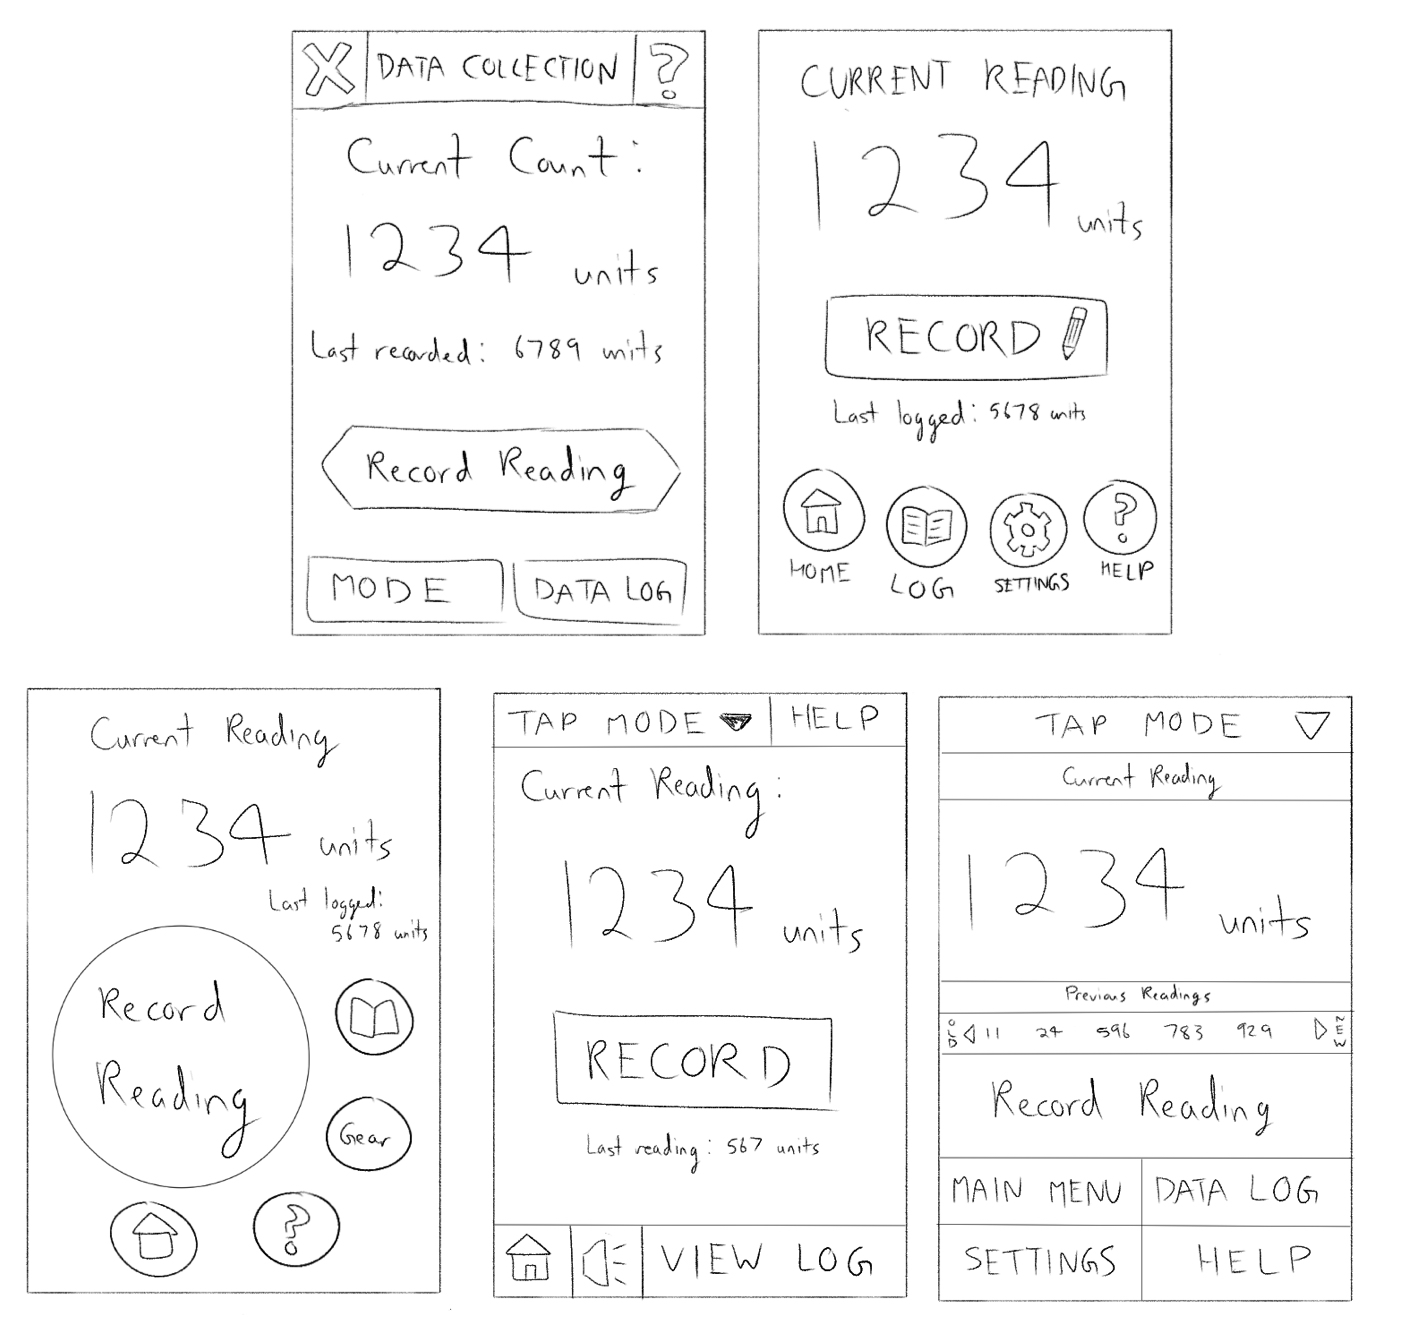 DATA COLLECTION ?
Current Count:
1234 units
Last recorded: 6789 units
Record Reading
MODE
DATA LOG
CURRENT READING
1234 units
RECORD
Last logged: 5678 units
HOME
LOG
SETTINGS
?
HELP
Current Reading
1234 units
Last logged:
5678 units
Record
Reading
Gear
?
TAP MODE
HELP
Current Reading:
1234 units
RECORD
Last reading: 567 units
VIEW LOG
TAP MODE
Current Reading
1234 units
Previous Readings
OLD 11 24 596 783 929 NEW
Record Reading
MAIN MENU
DATA LOG
SETTINGS
HELP